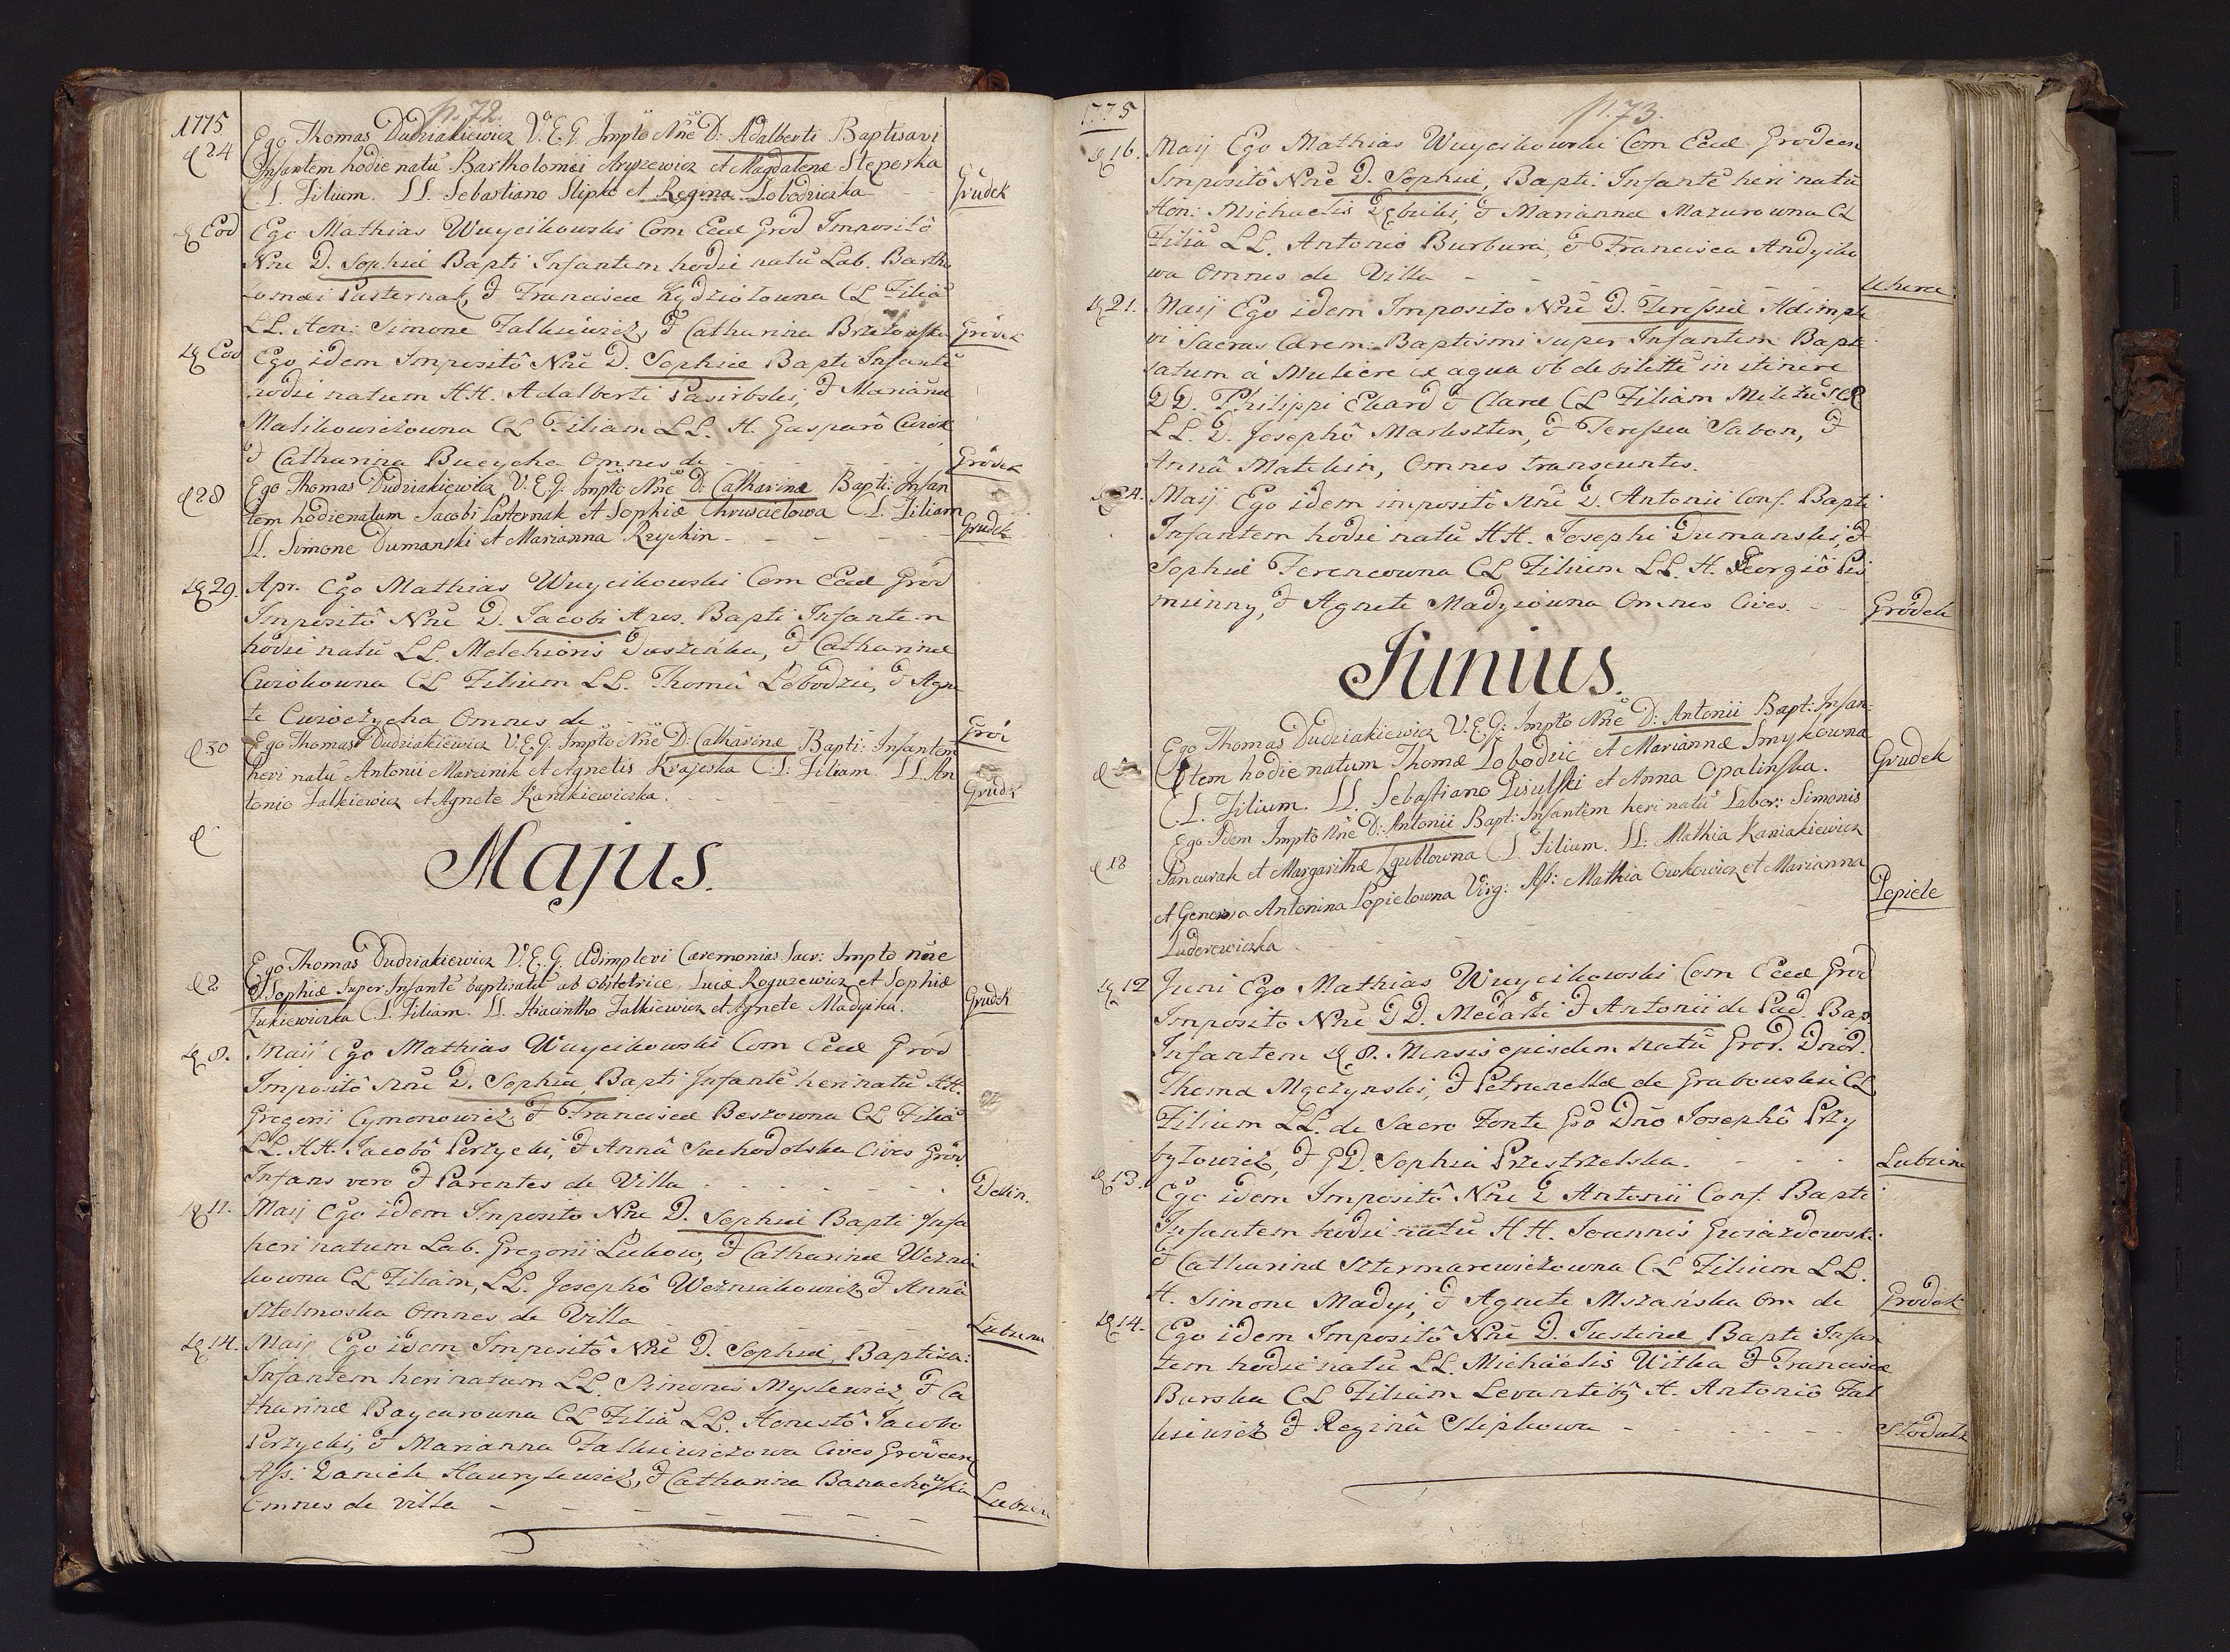 p. 72.
1775
d 24 Ego Thomas Dudziakiewicz V.E.G. Impto Nne D: Adalberti Baptisavi
Infantem hodie natū Bartholomei Aryszewicz et Magdalenæ Stęporka
C.L. Filium. LL. Sebastiano Slipko et Regina Lobodzicska Grudek
Eod Ego Mathias Wuycikowski Com Eccl Grod Impositô
Nne D. Sophiæ Bapti Infantem hodie natū Lab. Bartho
lomæi Pasternak, & Franciscæ Kydziolowna CL Filiā
LL. Hon: Simone Falkiewicz, & Catharina Brzezowska Grodek
Eod Ego idem Impositô Nnē D. Sophiæ Bapti Infantē
hodie natum HH. Adalberti Pasirbski, & Mariannæ
Malikowiczowna CL Filiam LL. H. Gasparô Cwiok
& Catharina Bucycha Omnes de Grodek
d 28 Ego Thomas Dudziakiewicz V.E.G. Impto Nne D: Catharinæ Bapti: Infan
tem hodienatum Jacobi Pasternak et Sophiæ Chruscielowa C.L. Filiam
LL. Simone Dumanski et Marianna Rzyckin Grudek
29. Apr. Ego Mathias Wuycikowski Com Eccl Grod
Impositô Nnē D. Jacobi Apos. Bapti Infantem
hodie natū LL. Melchioris Duszeńka, & Catharinæ
Cwiokowna CL Filium LL. Thomâ Lobodzic, & Agne
te Cwioczycha Omnes de Grod
d 30 Ego Thomas Dudziakiewicz V.E.G. Impto Nne D: Catharinæ Bapti: Infantem
heri natū Antonii Marcinik et Agnetis Krajeska C.L: Filiam. LL. An
tonio Falkiewicz et Agnete Kanikiewiczka. Grudek
d
Majus.
d 2 Ego Thomas Dudziakiewicz V.E.G. Adimplevi Cæremonias Sacr: Impto nne
D. Sophiæ super Infantē baptisatū ab obstetrice, Lucæ Roguzewicz et Sophiæ
Zukiewiczka C.L. Filiam. LL. Hiacintho Falkiewicz et Agnete Madyika. Grudek
8. Maij Ego Mathias Wuycikowski Com Eccl Grod
Impositô Nnē D. Sophiæ, Bapti Infantē heri natū HH.
Gregorii Cymonowicz & Franciscæ Beszowna CL Filiā
LL. HH. Jacobô Perzycki, & Annâ Suchodolska Cives Grod.
Infans vero & Parentes de Villa Dollin.
11. Maij Ego idem Imposito Nne D. Sophiæ Bapti Infa
heri natum Lab. Gregorii Lukow, & Catharinæ Wozni
kowna CL Filiam, LL. Josephô Wozniakowicz & Annâ
Stelmoska Omnes de Villa Lubien
14. Maij Ego idem Impositô Nnē D. Sophiæ, Baptisa:
Infantem heri natum LL. Simonis Myslewicz & Ca
tharinæ Baycarowna CL Filiā LL. Honestô Jacobo
Perzycki, & Marianna Falkiewiczowa Cives Grodeen
Ass: Daniele Hawrylewicz, & Catharina Banachowska
Omnes de villa Lubien
p. 73.
1775
16. Maij Ego Mathias Wuycikowski Com Eccl Grodecen
Impositô Nnē D. Sophiæ, Bapti: Infantē heri natū
Hon: Michaelis Dębicki, & Mariannæ Mazurowna CL
Filiā LL. Antonio Burbura, & Francisca Andyiko
wa Omnes de Villa Uherce
21. Maij Ego idem Imposito Nnē D. Teressiæ Adimple
vi Sacras Cærem: Baptismi super Infantem Bapti
satum â Muliere ex aqua ob debilittē in itinere
DD. Philippi Ekard & Claræ CL Filiam Militū S.C.R.
LL. D. Josephô Markszten, & Teressia Sabon, &
Annâ Matekin, Omnes transeuntes.
24. Maij Ego idem impositô Nnē D. Antonii Conf. Bapti
Infantem hodie natū HH. Josephi Dumanski, &
Sophiæ Ferencowna CL Filium LL. H. Georgiô Pis
mienny, & Agnete Madyiowna Omnes Cives. Grodek
Junius.
Ego Thomas Dudziakiewicz V.E.G: Impto Nne D: Antonii Bapt: Infan:
tem hodie natum Thomæ Lobodzic et Mariannæ Smykowna Grudek
C.L. Filium. LL. Sebastiano Pisulski et Anna Opalinska.
Ego Idem Impto Nne D: Antonii Bapt: Infantem heri natū Labor: Simonis
d 18 Pancurak et Margarithæ Zgublowna C.L. Filium. LL: Mathia Kaniakiewicz
et Generosa Antonina Popielowna Virg: Ass: Mathia Cwkowicz et Marianna Popiele
Luderewiczka
12 Juni Ego Mathias Wuycikowski Com Eccl Grod
Imposito Nnē DD. Medardi & Antonii de Pad. Bap
Infantem 8. Mensis ejusdem natū Grod. Dnōd.
Thoma Męczynski, & Petrunellæ de Grabowskie CL
Filium LL. de Sacro Fonte Grō Dnō Josephô Przy
bylowicz, & GD. Sophia Przestrzelska. Lubien
13. Ego idem Impositô Nnē D Antonii Conf. Bapti
Infantem hodie natū HH. Joannis Gwiazdowski
& Catharinæ Sztermarewiczowna CL Filium LL.
H. Simone Madyi, & Agnete Mszańska Om de Grodek
14. Ego idem Impositô Nnē D. Justinæ Bapti Infan
tem hodie natū LL. Michäelis Witka & Francisca
Burska CL Filiam Levantibg H. Antoniô Fal
kiewicz & Reginâ Slipkowa Stodulk